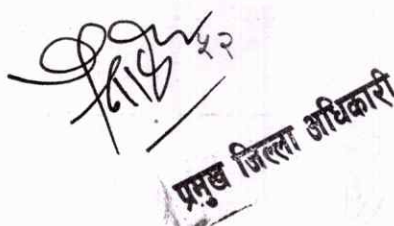 ५२
प्रमुख जिल्ला अधिकारी